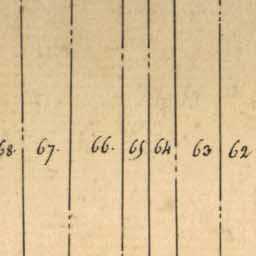 68. 67. 66. 65 64 63 62